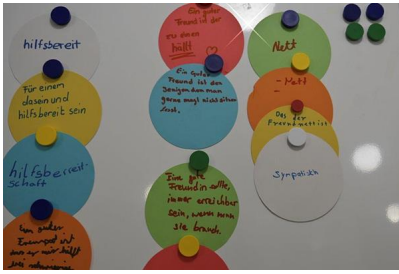 hilfsbereit
Für einem
dasein und
hilfsbereit sein
hilfsbereit-
schaft
er mir hilft
Ein guter
Freund ist der
zu einen
hällt
Ein guter
Freund ist den
jenigen dem man
gerne mag
Eine gute
Freundin sollte,
immer erreichbar
sein, wenn man
sie brauch.
Nett
- Nett
-
Das der
Freund nett ist
Sympatisch